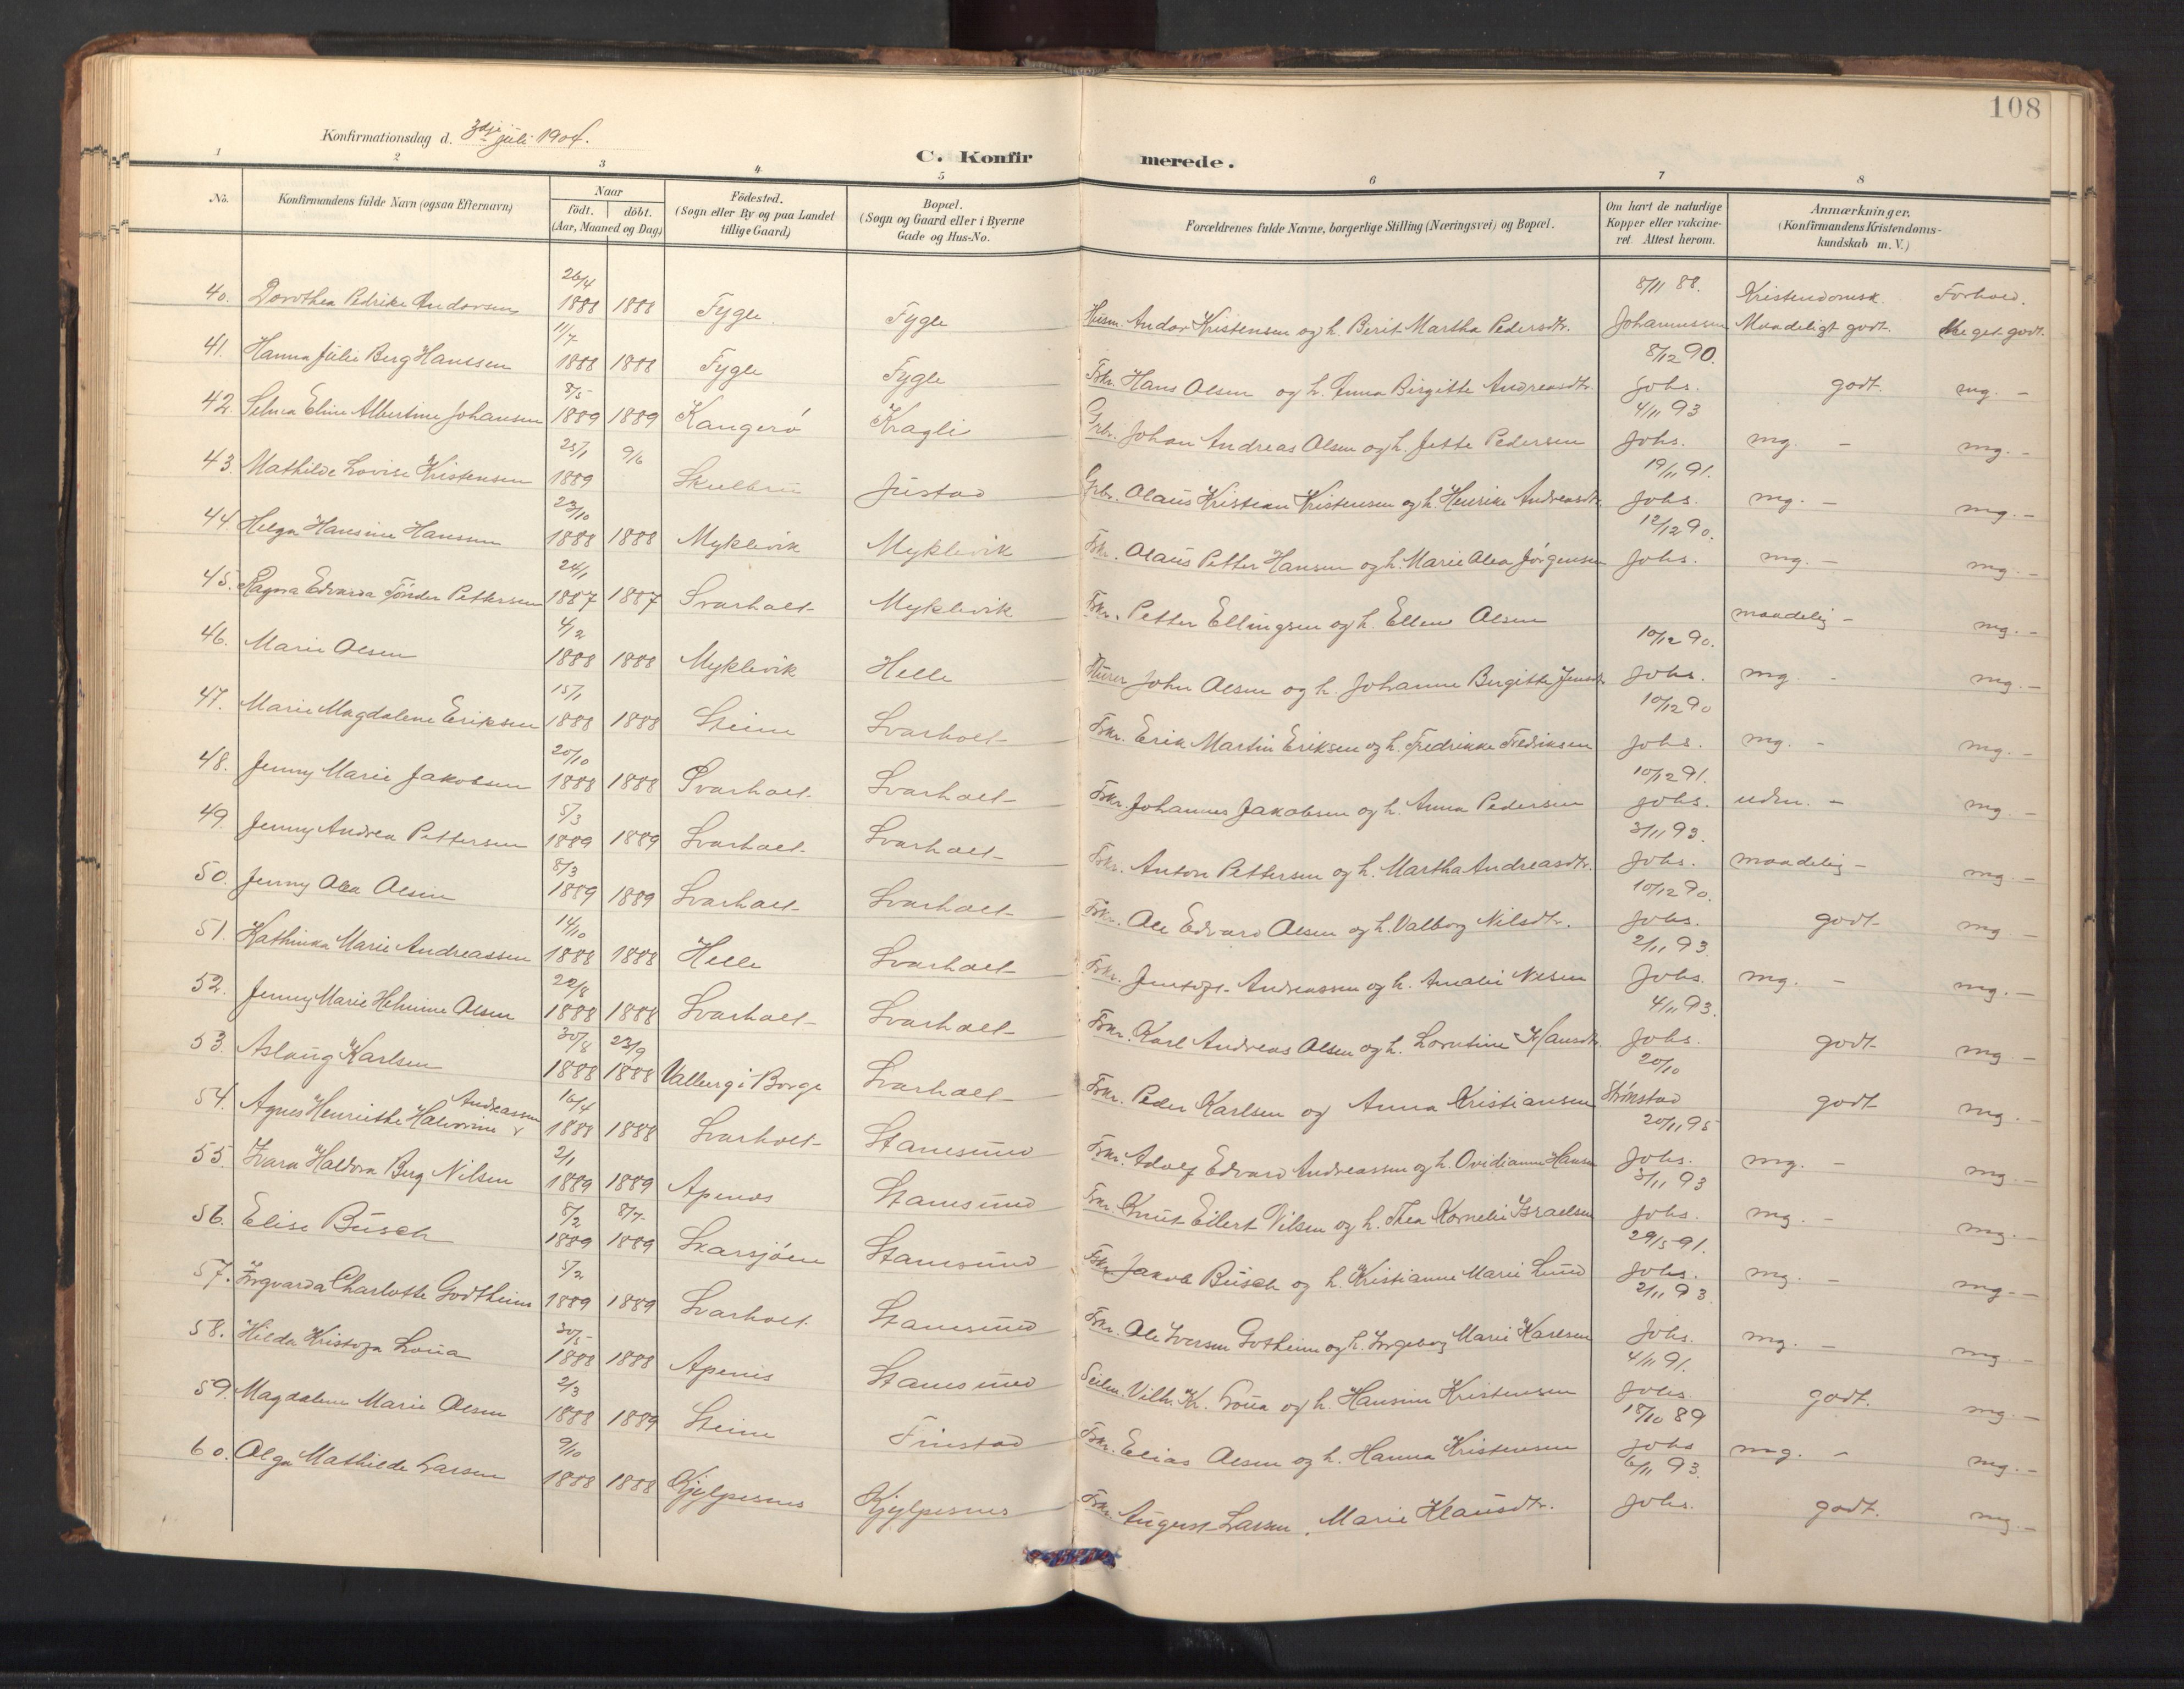 108
Konfirmationsdag d. 3dje juli 1904.
C. Konfirmerede.
1 2 3 4 5 6 7 8
No. Konfirmandens fulde Navn (ogsaa Efternavn) Naar födt. döbt. (Aar, Maaned og Dag) Födested. (Sogn eller By og paa Landet tillige Gaard) Bopæl. (Sogn og Gaard eller i Byerne Gade og Hus-No. Forældrenes fulde Navne, borgerlige Stilling (Næringsvei) og Bopæl. Om havt de naturlige Kopper eller vakcineret. Attest herom. Anmærkninger. (Konfirmandens Kristendomskundskab m. V.)
Kristendomsk. Forhold.
40. Dorothea Pedrike Andorsen 26/4 1888 1888 Fygle Fygle Husm. Andor Kristensen og h. Berit Martha Pedersdtr. 8/11 88. Johannessen Maadeligt godt. Meget godt.
41. Hanna Julie Berg Hanssen 11/7 1888 1888 Fygle Fygle Fskr. Hans Olsen og h. Anna Birgitte Andreasdtr. 8/12 90. Johs. godt. mg. -
42. Selma Eline Albertine Johansen 8/5 1889 1889 Kangerö Kragli Grbr. Johan Andreas Olsen og h. Jette Pedersen 4/11 93 Johs. mg. - mg. -
43. Mathilde Lovise Kristensen 25/1 1889 9/6 Skulbru Justad Grbr. Olaus Kristian Kristensen og h. Henrike Andreasdtr. 19/11 91. Johs. mg. - mg. -
44. Helga Hansine Hanssen 23/10 1888 1888 Myklevik Myklevik Fskr. Olaus Petter Hansen og h. Marie Olea Jörgensen 12/12 90. Johs. mg. - mg. -
45. Ragna Edvarda Tönder Pettersen 24/1 1887 1887 Svarholt Myklevik Fskr. Petter Ellingsen og h. Ellen Olsen maadelig - mg. -
46. Marie Olsen 4/2 1888 1888 Myklevik Helle Murer John Olsen og h. Johanne Birgitte Jensdtr. 10/12 90. Johs. mg. - mg. -
47. Marie Magdalene Eriksen 15/1 1888 1888 Steine Svarholt Fskr. Erik Martin Eriksen og h. Fredrikke Fredriksen 10/12 90 Johs. mg. - mg. -
48. Jenny Marie Jakobsen 20/10 1888 1888 Svarholt Svarholt Fskr. Johannes Jakobsen og h. Anna Pedersen 10/12 91. Johs. uden. - mg. -
49. Jenny Andrea Pettersen 5/3 1889 1889 Svarholt Svarholt Fskr. Anton Pettersen og h. Martha Andreasdtr. 3/11 93. Johs. maadelig - mg. -
50. Jenny Olea Olsen 8/3 1889 1889 Svarholt Svarholt Fskr. Ole Edvard Olsen og h. Valborg Nilsdtr. 10/12 90. Johs. godt mg -
51. Kathinka Marie Andreassen 14/10 1888 1888 Helle Svarholt Fskr. Jentoft Andreassen og h. Amalie 2/11 93 Johs. mg. - mg. -
52. Jenny Marie Helmine Olsen 22/8 1888 1888 Svarholt Svarholt Fskr. Karl Andreas Olsen og h. Lorntine Hansdtr. 4/11 93. Johs. godt mg -
53. Aslaug Karlsen 30/8 1888 23/9 1888 Valberg i Borge Svarholt Fskr. Peder Karlsen og Anna Kristiansen 20/10 Strönstad godt mg. -
54. Agnes Henriette Halvorine Andreassen 16/4 1888 1888 Svarholt Stamsund Fskr. Adolf Edvard Andreassen og h. Ovidianne Hansen 20/11 95 Johs. mg. - mg. -
55. Ivara Haldora Berg Nilsen 2/1 1889 1889 Apenes Stamsund Fskr. Knut Eilert Nilsen og h. Thea Kornelie Israelsen 3/11 93 Johs. mg. - mg. -
56. Elise Busch 8/2 1889 8/7 1889 Skarsjöen Stamsund Fskr. Jakob Busch og h. Kristianne Marie Lund 29/5 91. Johs. mg. - mg. -
57. Ingvarda Charlotte Godtheim 5/2 1889 1889 Svarholt Stamsund Fskr. Ole Iversen Gotheim og h. Ingeborg Marie Karlsen 2/11 93 Johs. mg. - mg. -
58. Hilda Kristofa Loua 30/5 1888 1888 Apenes Stamsund Seilm. Vilh. Kr. Loua og h. Hansine Kristensen 4/11 91. Johs. godt. mg. -
59. Magdalene Marie Olsen 2/3 1888 1889 Steine Finstad Fskr. Elias Olsen og h. Hanna Kristensen 18/10 89 Johs mg. - mg. -
60. Olga Mathilde Larsen 9/10 1888 1888 Kjylpesnes Kjylpesnes Fskr. August Larsen, Marie Klausdtr. 6/11 93. Johs. godt. mg. -